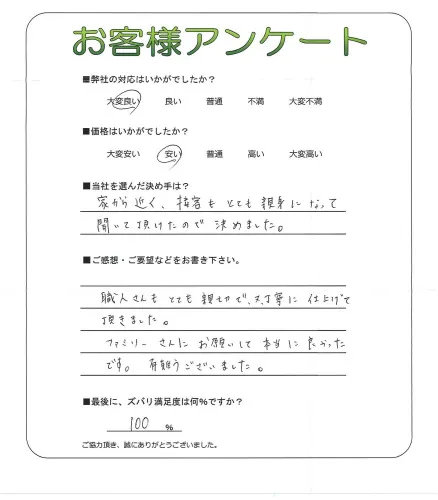 お客様アンケート
■弊社の対応はいかがでしたか?
大変良い 良い 普通 不満 大変不満
■価格はいかがでしたか?
大変安い 安い 普通 高い 大変高い
■当社を選んだ決め手は?
家から近く、接客もとても親身になって
聞いて頂けたので決めました。
■ご感想・ご要望などをお書き下さい。
職人さんもとても親切で、丁寧に仕上げて
頂きました。
ファミリーさんにお願いして本当に良かった
です。有難うございました。
■最後に、ズバリ満足度は何%ですか?
100 %
ご協力頂き、誠にありがとうございました。